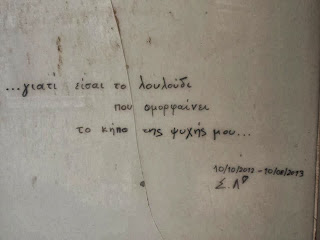 ...γιατί είσαι το λουλούδι
που ομορφαίνει
το κήπο της ψυχής μου...
10/10/2012 - 10/08/2013
Σ.Λ